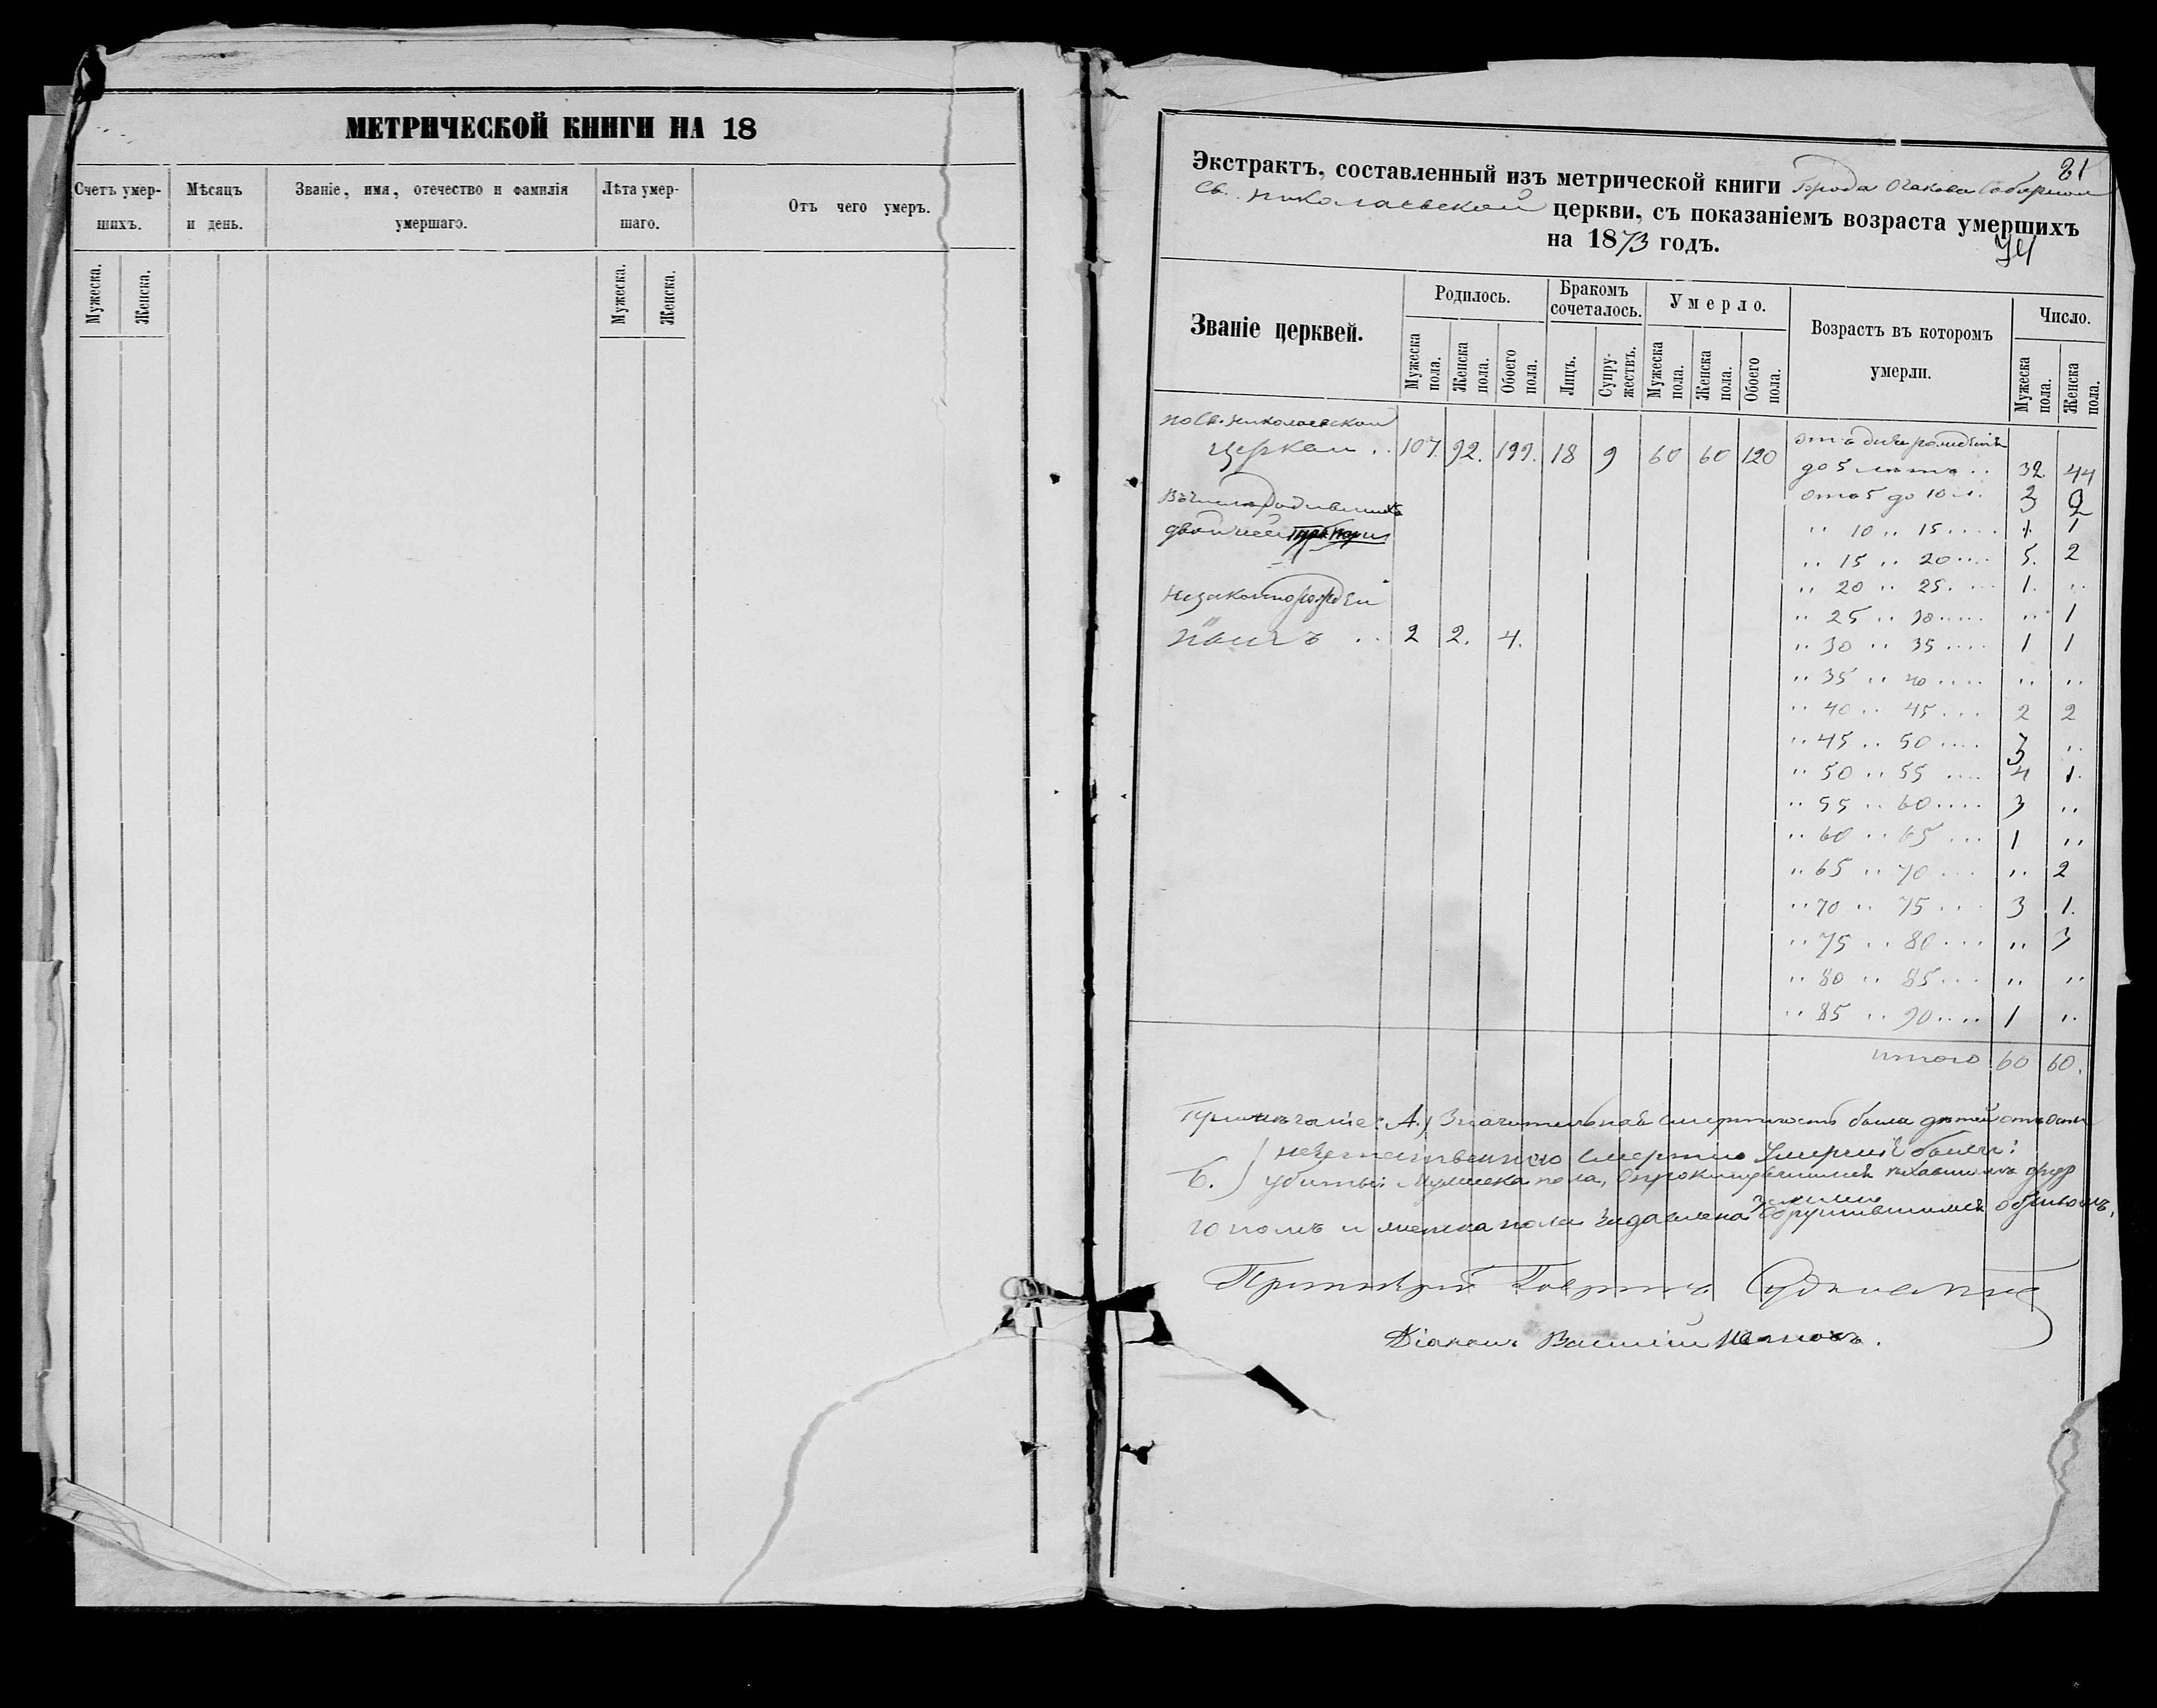 МЕТРИЧЕСКОЙ КНИГИ НА 18
Счетъ умер-
шихъ.
Мѣсяцъ
и день.
Званіе, имя, отечество и фамилія
умершаго.
Лѣта умер-
шаго.
Отъ чего умеръ.
Мужеска.
Женска.
Мужеска.
Женска.
21
Экстрактъ, составленный изъ метрической книги Города Очакова Соборной
Св. Николаевской церкви, съ показаніемъ возраста умершихъ
на 1873 годъ.
74
Званіе церквей.
Родилось.
Бракомъ
сочеталось.
Умерло.
Возрастъ въ которомъ
умерли.
Число.
Мужеска пола.
Женска пола.
Обоего пола.
Лицъ.
Супру-
жествъ.
Мужеска пола.
Женска пола.
Обоего пола.
Мужеска пола.
Женска пола.
по Св. Николаевской
Церкви .. 107. 92. 199. 18 9 60 60 120
отъ дня рожденія
до 5 лѣтъ .. 32. 44
отъ 5 до 10 л. 3 2
Въ числѣ родившихся
двойней
" 10 " 15 .... 1. 1
" 15 " 20 .... 5. 2
" 20 " 25. ... 1. "
незаконнорожден
" 25 " 30 .... " 1
ныхъ .. 2 2. 4.
" 30 " 35 .... 1 1
" 35 " 40 .... " "
" 40 " 45 .... 2 2
" 45 " 50 .... 3 "
" 50 " 55 .... 4 1.
" 55 " 60 .... 3 "
" 60 " 65 ... 1 "
" 65 " 70 ... " 2
" 70 " 75 ... 3 1.
" 75 " 80 ... " 3
" 80 " 85 ... " "
" 85 " 90 .... 1 "
итого 60 60.
Примѣчаніе: А.) Значительная смертность была дѣтей отъ оспы
неестественною смертію умершіе были:
Б.) убитый мужеска пола, опрокинувшимся
и женска пола задавлена обрушившимся обрывомъ.
Протоіерей Гавріилъ Судковскій
Діаконъ Василій